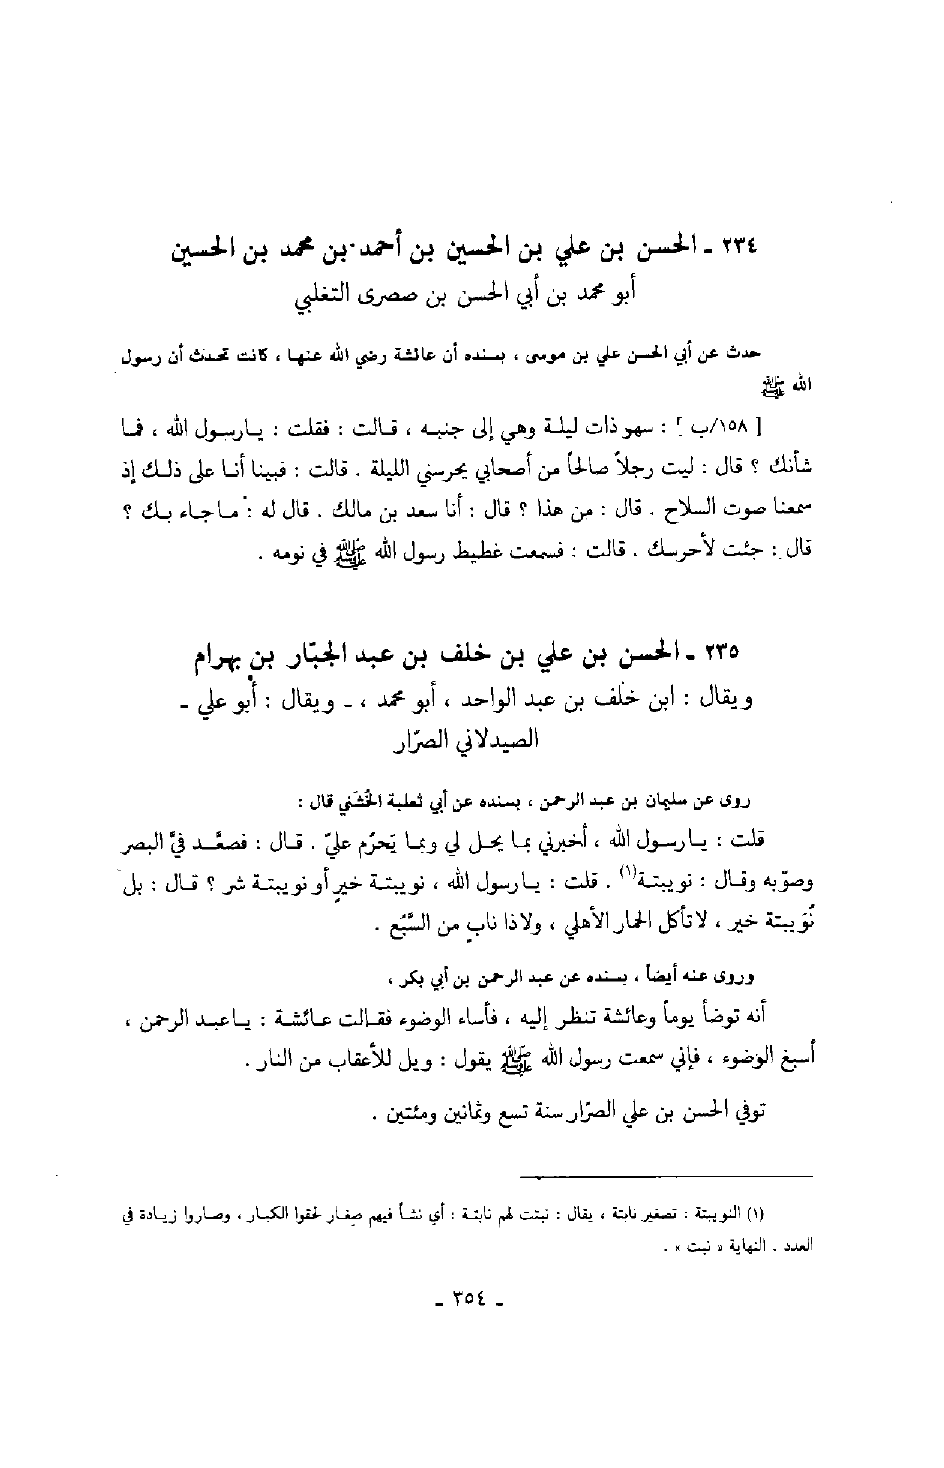 ٢٣٤ ـ الحسن بن علي بن الحسين بن أحمد بن محمد بن الحسين
أبو محمد بن أبي الحسن بن صصرى التغلبي
حدث عن أبي الحسن علي بن موسى ، بسنده أن عائشة رضي الله عنها ، كانت تحدث أن رسول
الله ﷺ
[ ١٥٨/ب ] : سهر ذات ليلة وهي إلى جنبه ، قالت : فقلت : يارسول الله ، فما
شأنك ؟ قال : ليت رجلاً صالحاً من أصحابي يحرسني الليلة . قالت : فبينا أنا على ذلك إذ
سمعنا صوت السلاح . قال : من هذا ؟ قال : أنا سعد بن مالك . قال له : ماجاء بك ؟
قال : جئت لأحرسك . قالت : فسمعت غطيط رسول الله ﷺ في نومه .
٢٣٥ ـ الحسن بن علي بن خلف بن عبد الجبّار بن بهرام
ويقال : ابن خلف بن عبد الواحد ، أبو محمد ، ـ ويقال : أبو علي ـ
الصيدلاني الصرّار
روى عن سليمان بن عبد الرحمن ، بسنده عن أبي ثعلبة الخُشَني قال :
قلت : يارسول الله ، أخبرني بما يحل لي وبما يَحرُم عليّ . قال : فصعَّد فيَّ البصر
وصوّبه وقال : نويبتة(١) . قلت : يارسول الله ، نويبتة خيرٍ أو نويبتة شر ؟ قال : بل
نُوَيبتة خير ، لاتأكل الحمار الأهلي ، ولاذا نابٍ من السَّبُع .
وروى عنه أيضاً ، بسنده عن عبد الرحمن بن أبي بكر ،
أنه توضأ يوماً وعائشة تنظر إليه ، فأساء الوضوء فقالت عائشة : ياعبد الرحمن ،
أسبغ الوضوء ، فإني سمعت رسول الله ﷺ يقول : ويل للأعقاب من النار .
توفي الحسن بن علي الصرّار سنة تسع وثمانين ومئتين .
(١) النويبتة : تصغير نابتة ، يقال : نبتت لهم نابتة : أي نشأ فيهم صغار لحقوا الكبار ، وصاروا زيادة في
العدد . النهاية « نبت » .
ـ ٣٥٤ ـ